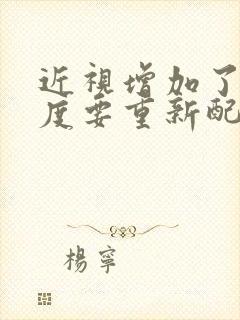 近視增加了
度要重新配
楊寧